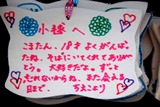 小雄へ
こまたん、18才よくがんばっ
たね。そばにいてくれてありがと
う。大好きだよ。ずっと
忘れないからね、また会える
日まで。 ちえこより